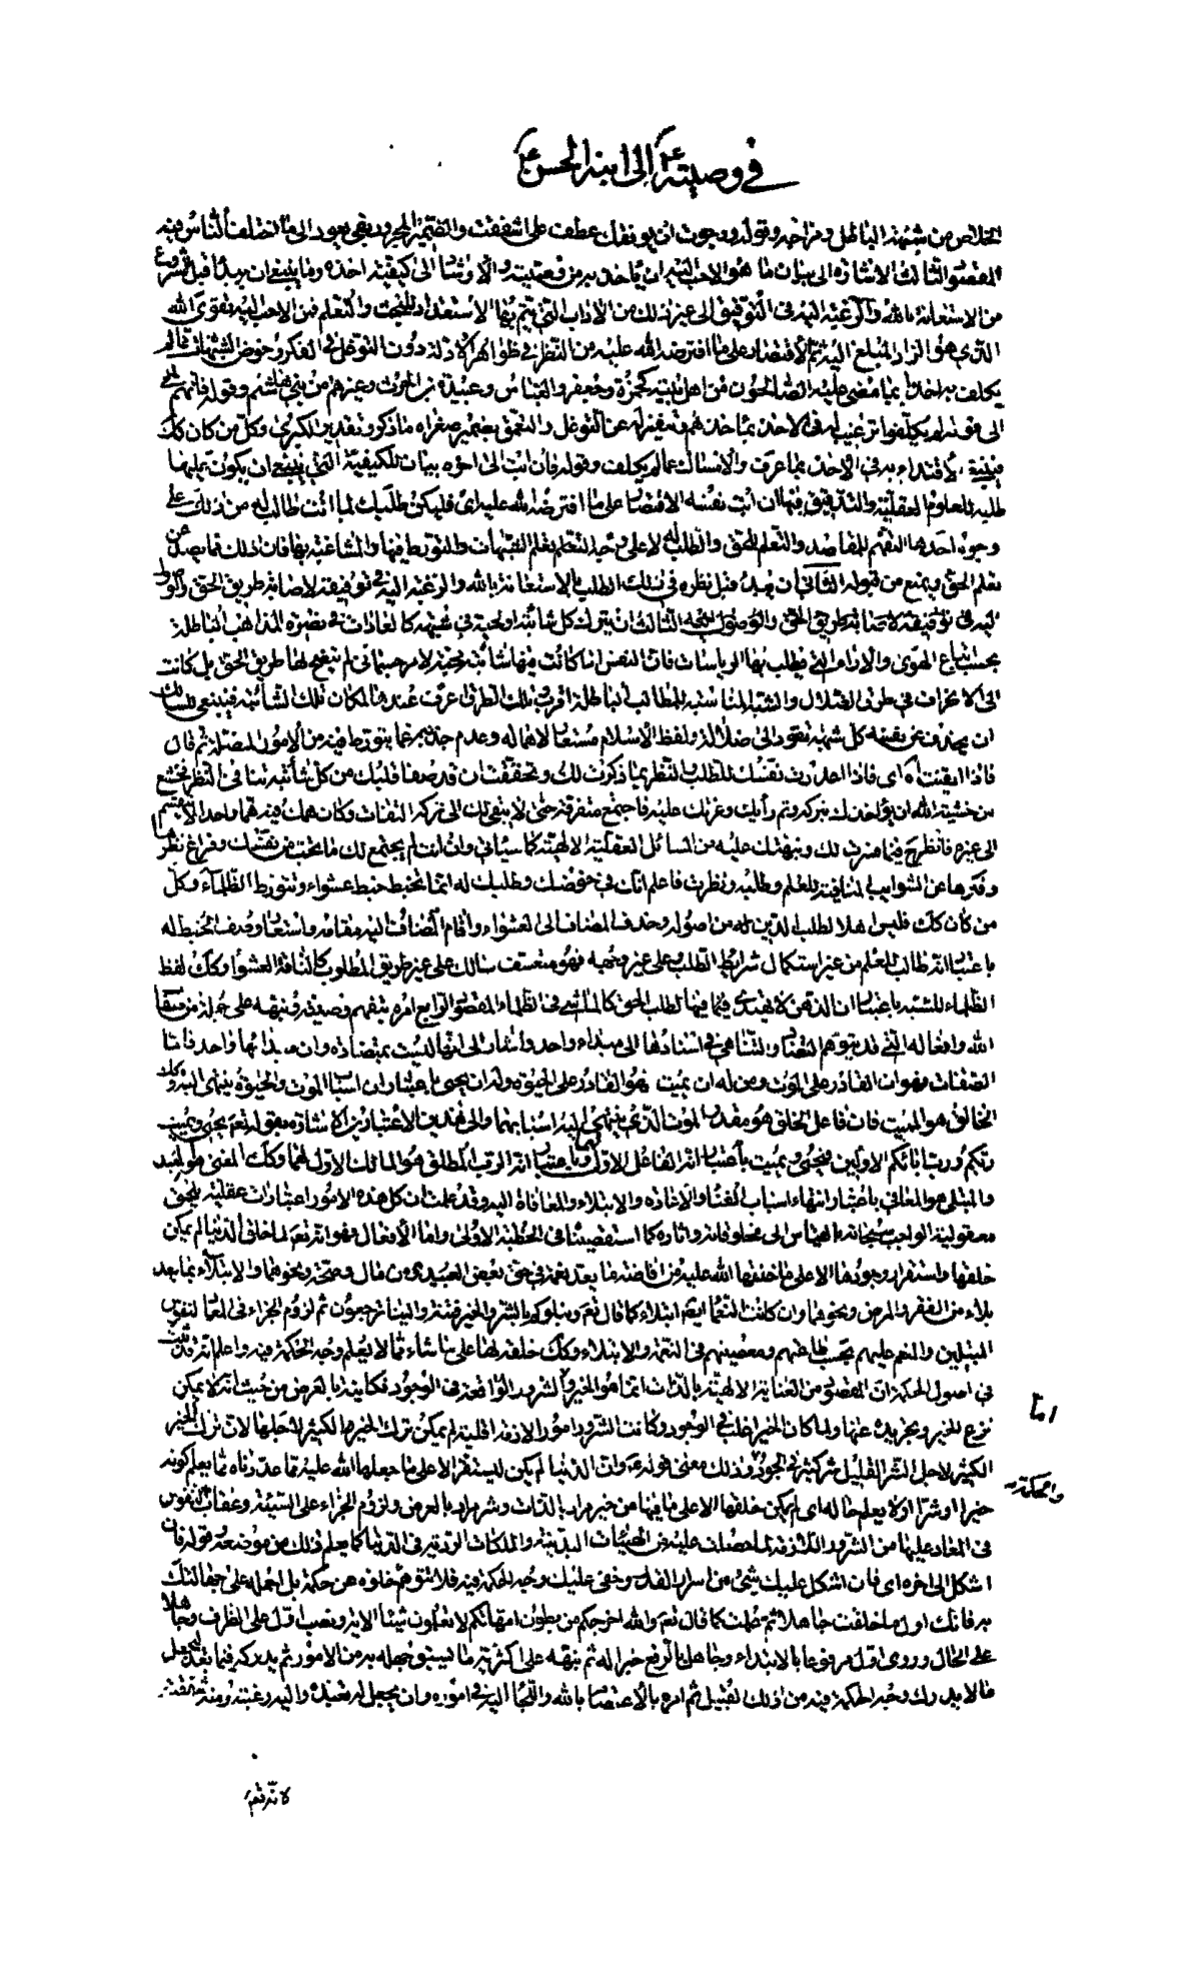 في وصيته ع الى ابنه الحسن ع
الخلاص من شبهة الباطل ومزاجه وقوله ورجوت ان يوفقك عطف على اشفقت والضمير المجرور بفي يعود الى ما اختلف الناس فيه
المقصود الثالث الاشارة الى بيان ما هو الاحب اليه ان ياخذ به من وصيته والارشاد الى كيفية اخذه وما ينبغي ان يبدأ قبل الشروع
من الاستعانة بالله والرغبة اليه في التوفيق الى غير ذلك من الآداب التي يتم بها الاستعداد للبحث والتعلم فمن الاحب اليه تقوى الله
الذي هو الزاد المبلغ اليه ثم الاقتصار على ما افترضه الله عليه من النظر في ظواهر الادلة دون التوغل في الفكر وخوض الشبهات فانه لم
يكلف به اخذا بما مضى عليه الصالحون من اهل بيته كحمزة وجعفر والعباس وعبيدة بن الحرث وغيرهم من بني هاشم وقوله فانهم لم
الى قوله لم يكلفوا ترغيب له في الاخذ بما اخذ هم وتنفير له عن التوغل والتعمق بضمير صغراه ما ذكر وتقدير الكبرى وكل من كان كك
فينبغي الاقتداء به في الاخذ بما عرف والامساك عما لم يكلف وقوله فان ابت الى اخره بيان للكيفية التي ينبغي ان يكون عليها
طلبه للعلوم العقلية والتدقيق فيها ان ابت نفسه الاقتصار على ما افترضه الله عليه اى فليكن طلبك لما انت طالب له من ذلك على
وجوه احدها التفهم للمقاصد والتعلم للحق والطلب له لا على وجه التعلم بعلم الشبهات والتورط فيها والمشاغبة بها فان ذلك مما يصد عن
تعلم الحق ويمنع من قبوله الثاني ان يبدء قبل نظره في ذلك الطلب بالاستعانة بالله والرغبة اليه في توفيقه لاصابة طريق الحق والوصول
اليه في توفيقه لاصابة طريق الحق والوصول اليه الثالث ان يترك كل شائبة اولجته في شبهة كالعادات في نصرة المذاهب الباطلة
بحسب اتباع الهوى والاراء التي يطلب بها الرياسات فان النفس اذا كانت فيها شائبة محبة لامر جسماني لم يتضح لها طريق الحق بل كانت
الى الانحراف في طرق الضلال والشبه المناسبة للمطالب الباطلة اقرب تلك الطرق اعرف عندها لمكان تلك الشائبة فينبغي للسالك
ان يحذف عن نفسه كل شبهة تقود الى ضلالة ولفظ الاسلام مستعار لاهماله وعدم جذبه عما يتورط فيه من الامور المضلة ثم قال
فاذا ايقنت آه اى فاذا اعددت نفسك للطلب والنظر بما ذكرت لك وتحققت ان قد صفا قلبك من كل شائبة تنافي النظر فخشع
من خشية الله ان يؤاخذك بتركه وتم رأيك وعزمك عليه فاجتمع متفرقه حتى لا يبقى لك الى تركه التفات وكان همك فيه هما واحدا لا ينقسم
الى غيره فانظر ح فيما فسرت لك ونبهتك عليه من المسائل العقلية الالهية كما سياتي وان انت لم يجتمع لك ما تحب من نفسك وفراغ نظرها
وفكرها عن الشوايب المنافية للعلم وطلبه ونظرت فاعلم انك في خوضك وطلبك له انما تخبط خبط عشواء وتتورط الظلماء وكل
من كان كك فليس اهلا لطلب الدين من اصوله وحذف المضاف الى العشواء واقام المضاف اليه مقامه واستعار وصف الخبط له
باعتبار انه طالب للعلم من غير استكمال شرايط الطلب وعلى غير وجهه فهو متعسف سالك على غير طريق المطلوب كالناقة العشواء وكك لفظ
الظلماء للشبه باعتبار ان الذهن لا يهتدي فيها لطلب الحق كالماشي في الظلماء المقصود الرابع امره بتفهم وصيته وتنبيهه على جملة من صفات
الله وافعاله التي قد يتوهم التضاد والتناقض في اسنادها الى مبداء واحد واشار الى انها ليست بمتضادة وان مبدائها واحد فاما
الصفات فهو ان القادر على الموت ومن له ان يميت فهو القادر على الحيوة وله ان يحيى باعتبار ان اسباب الموت والحيوة ينتهى اليه وكك
الخالق هو المميت فان فاعل الخلق هو مقدر الموت الذي ينتهي اليه اسبابهما والى هذين الاعتبارين الاشارة بقوله تعم يحيى ويميت
ربكم ورب ابائكم الاولين فيحيى ويميت باعتبار انه الفاعل الاول لهما وباعتبار انه الرب المطلق هو المالك الاول لهما وكك المفني هو المعيد
والمبتلي هو المعافي باعتبار انتهاء اسباب الفناء والاعادة والابتلاء والمعافاة اليه وقد علمت ان كل هذه الامور اعتبارات عقلية يلحق
معقولية الواجب سبحانه بالقياس الى مخلوقاته واثاره كما استقصيناه في الخطبة الاولى واما الافعال فهو انه تعم لما خلق الدنيا لم يمكن
خلقها واستقرار وجودها الا على ما خلقها الله عليه من افاضة ما يعد نعمة في حق بعض العبيد من مال وصحة ونحوهما والابتلاء بما يعد
بلاء من الفقر والمرض ونحوهما وان كانت النعماء ايضا ابتلاء كما قال تعم ونبلوكم بالشر والخير فتنة والينا ترجعون ثم لزوم الجزاء في المعاد لنفوس
المبتلين والمنعم عليهم بحسب طاعتهم ومعصيتهم في النعمة والابتلاء وكك خلقه لها على ما شاء مما لا يعلم وجه الحكمة فيه واعلم انه قد ثبت
في اصول الحكمة ان المقصود من العناية الالهية بالذات انما هو الخير واما الشرور الواقعة في الوجود فكاينة بالعرض من حيث انه لا يمكن
نزع الخير وتجريده عنها ولما كان الخير اغلب في الوجود وكانت الشرور امورا لازمة اقلية لم يمكن ترك الخير الكثير لاجلها لان ترك الخير
الكثير لاجل الشر القليل شر كثير في الجود والحكمة وذلك معنى قوله وان الدنيا لم يكن لتستقر الا على ما جعلها الله عليه مما عددناه مما يعلم كونه
خيرا او شرا او لا يعلم حاله اى لم يمكن خلقها الا على ما فيها من خير مراد بالذات وشر مراد بالعرض ولزوم الجزاء على السيئة وعقاب النفوس
في المعاد عليها من الشرور اللازمة لما حصلت عليه من الهيئات البدنية والملكات الردية في الدنيا كما يعلم ذلك من موضعه قوله فان
اشكل الى اخره اى فان اشكل عليك شئ من اسرار القدر وخفى عليك وجه الحكمة فيه فلا تتوهم خلوه عن حكمة بل احمله على جهالتك
به فانك اول ما خلقت جاهلا ثم علمت كما قال تعم والله اخرجكم من بطون امهاتكم لا تعلمون شيئا الاية ونصب اول على الظرف وجاهلا
على الحال وروى اول مرفوعا بالابتداء وجاهل بالرفع خبرا له ثم نبهه على اكثرية ما يسبق جهله به من الامور ثم يدركه فيما بعد لجعل
ما لا يدرك وجه الحكمة فيه من ذلك القبيل ثم امره بالاعتصام بالله والالتجاء اليه في اموره وان يجعل له تعبده واليه رغبته ومنه شفقته
اما
والحكمة
لانه تعم